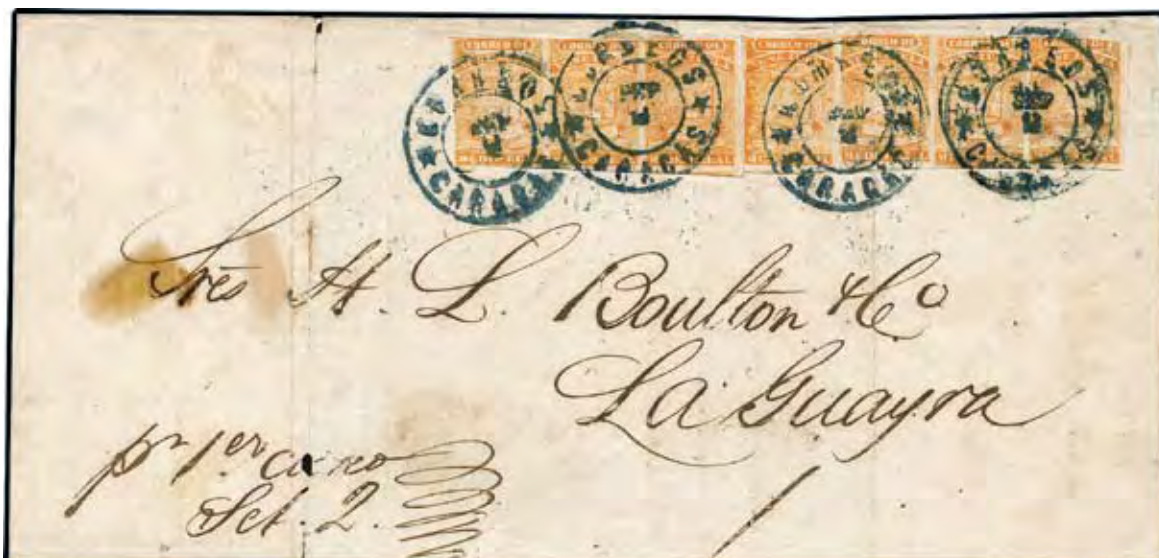 CORREOS CARACAS
CORREOS CARACAS
CORREOS CARACAS
CORREOS CARACAS
Sres H. L. Boulton & Co
La Guayra
pr 1er correo
Set. 2.